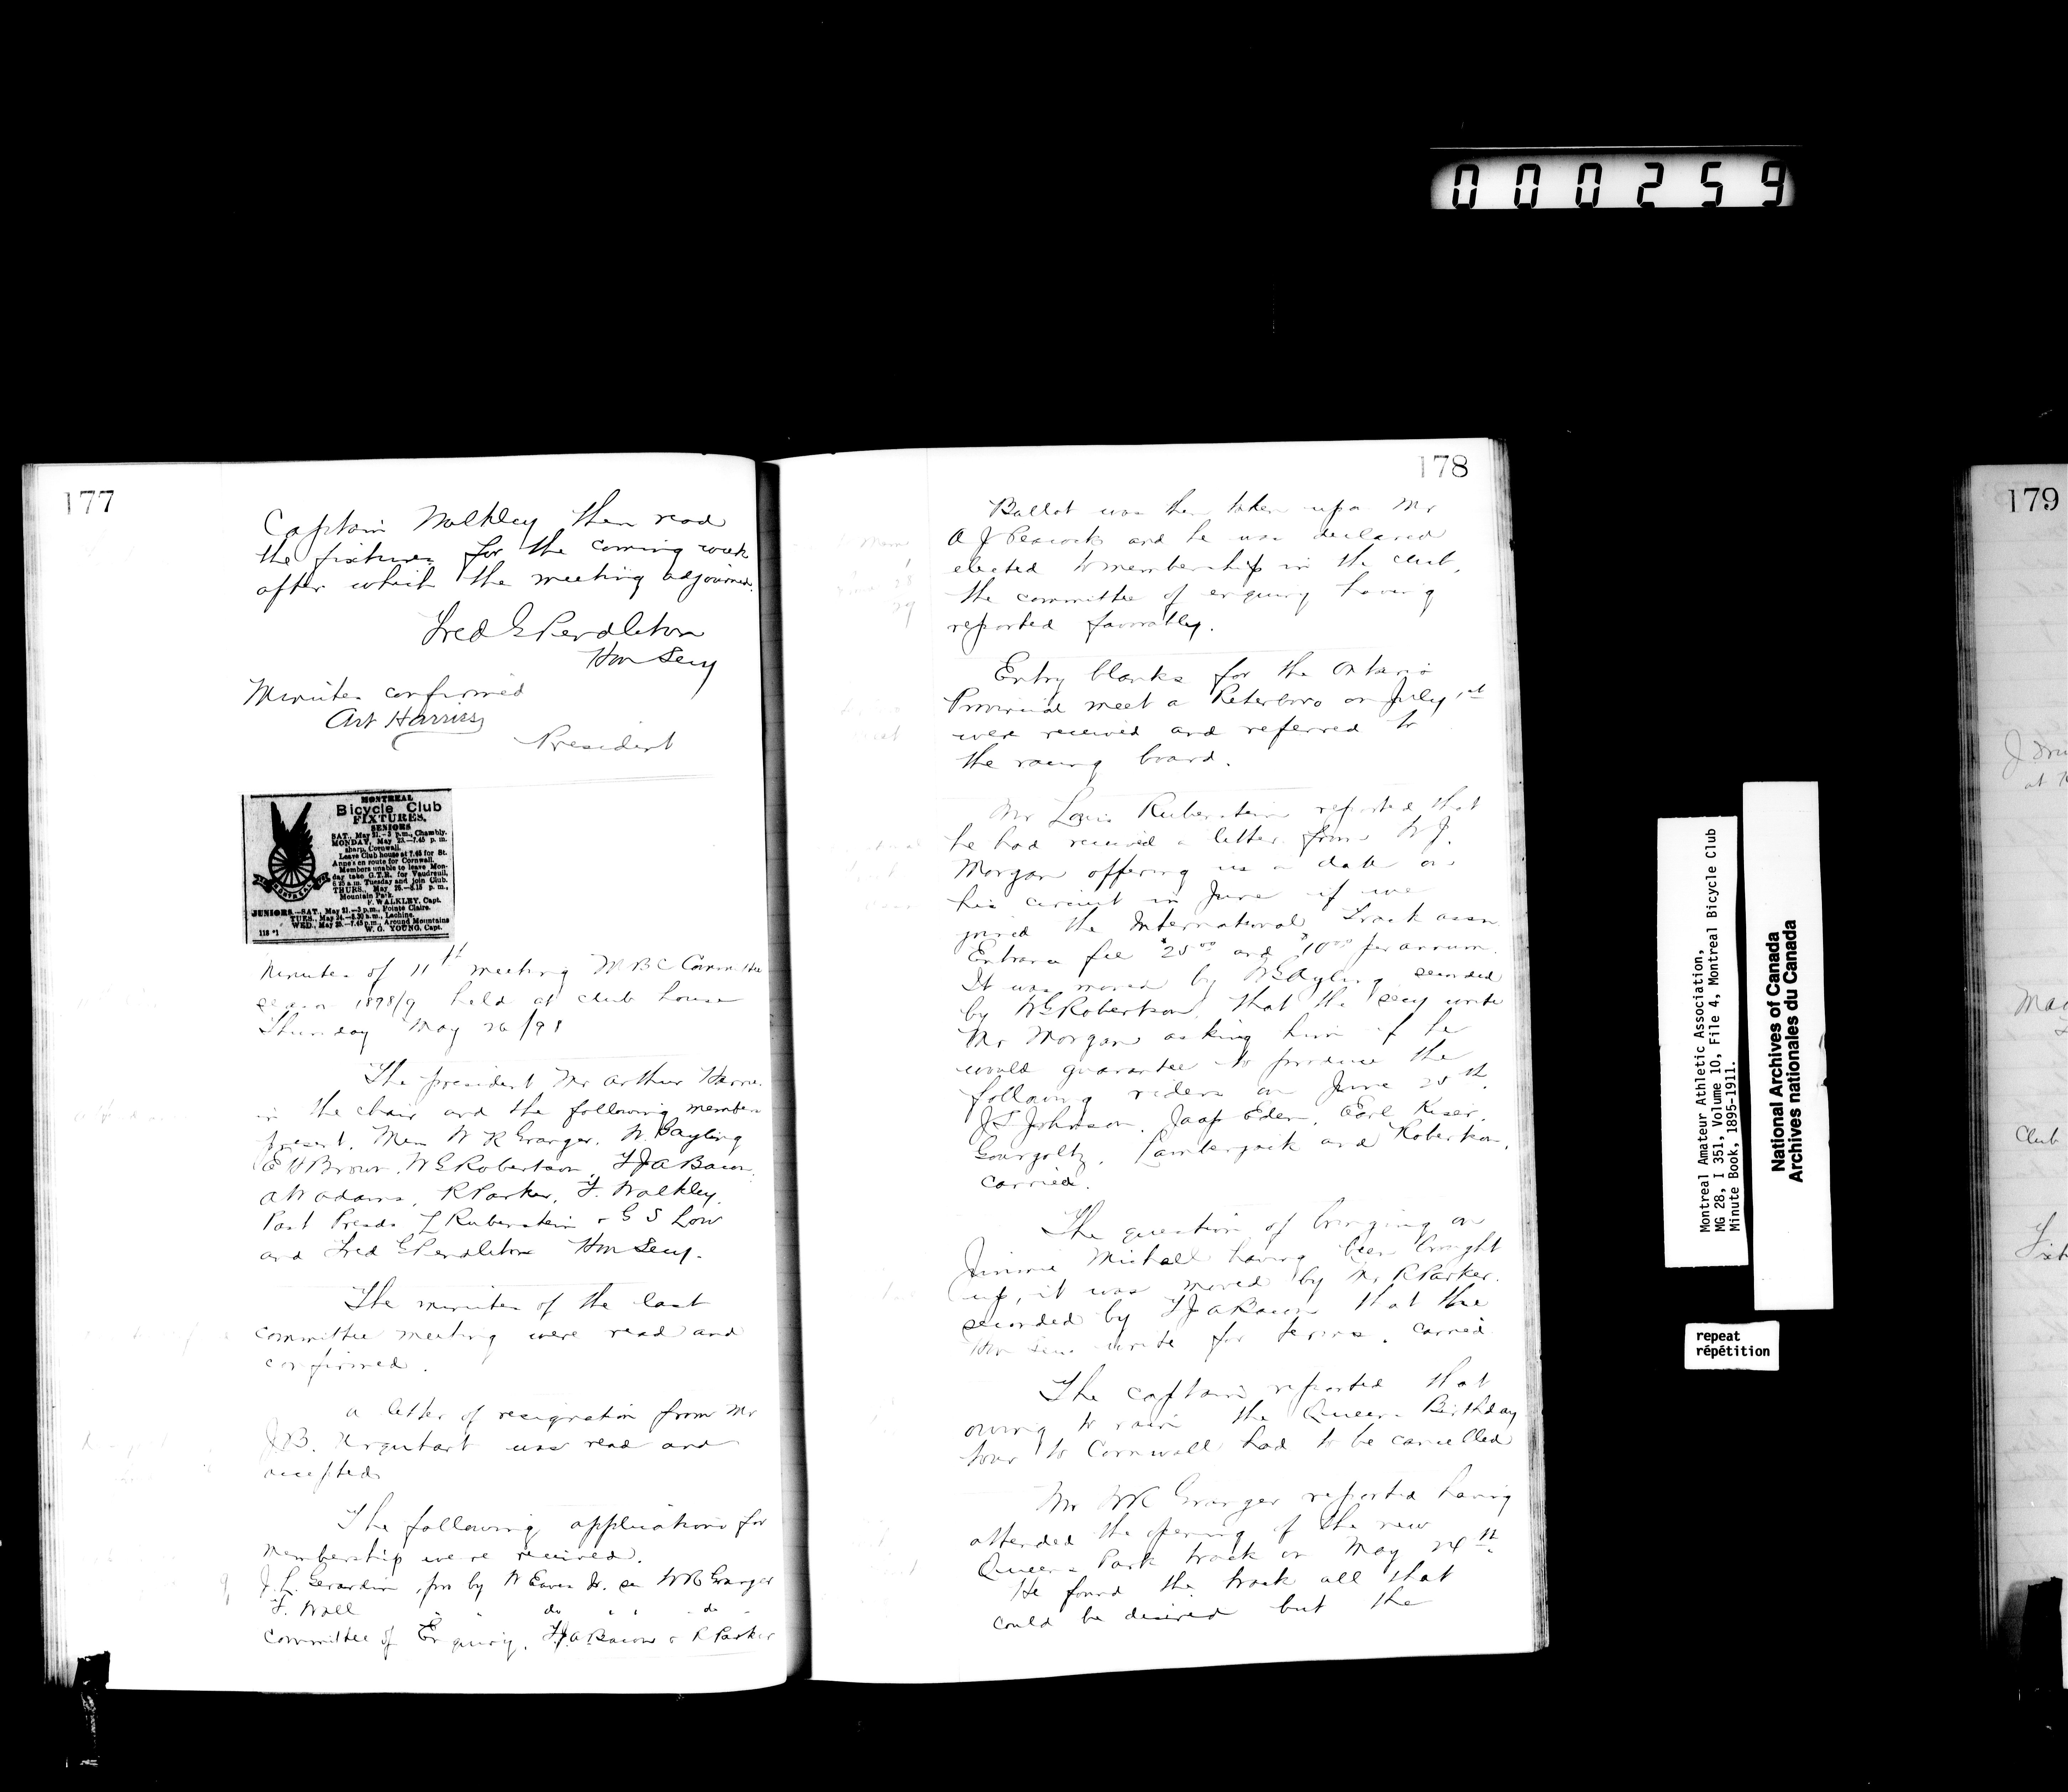 000259
177
Captain Walkley then read
the fixtures for the coming week
after which the meeting adjourned.
Fred G Pendleton
Hon Secy
Minutes confirmed
Art Harriss
President
MONTREAL
Bicycle Club
FIXTURES.
SENIORS
SAT., May 21.—3 p.m., Chambly.
MONDAY, May 23.—7.45 p. m.
sharp, Cornwall.
Leave Club house at 7.45 for St.
Anne's en route for Cornwall.
Members unable to leave Mon-
day take G.T.R. for Vaudreuil,
6.25 a.m. Tuesday and join Club.
THURS., May 26.—8.15 p. m.,
Mountain Park.
F. WALKLEY, Capt.
JUNIORS.—SAT., May 21.—3 p.m., Pointe Claire.
TUES., May 24.—8.30 a.m., Lachine.
WED., May 25.—7.45 p.m., Around Mountains
W. G. YOUNG, Capt.
118 *1
Minutes of 11th meeting M B C Committee
season 1898/9 held at club house
Thursday May 26/98
The president Mr Arthur Harriss
in the chair and the following members
present. Mess W R Granger. W. G Ayling
E W Brown. W G Robertson, F J A Bacon.
A W Adams, R Parker, F. Walkley.
Past Presds L Rubenstein & G S Low
and Fred G Pendleton Hon Secy.
The minutes of the last
committee meeting were read and
confirmed.
A letter of resignation from Mr
J B. Urquhart was read and
accepted
The following applications for
membership were received.
J. L. Gerardin, pro by W Eaves Jr. sec W R Granger
F. Wall " " do " " do "
Committee of Enquiry. F J A Bacon & R Parker
178
Ballot was then taken upon Mr
A J Peacock and he was declared
elected to membership in the club,
the committee of enquiry having
reported favorably.
Entry blanks for the Ontario
Provincial meet a Peterboro on July 1st
were received and referred to
the racing board.
Mr Louis Rubenstein reported that
he had received a letter from W J.
Morgan offering us a date on
his circuit in June if we
joined the International Track assn
Entrance fee $25.00 and $10.00 per annum.
It was moved by W G Ayling seconded
by W G Robertson, that the secy write
Mr Morgan asking him if he
would guarantee to produce the
following riders on June 25th.
J S Johnson, Jaap Eden, Earl Kiser,
Gougoltz, Lamberjack and Robertson.
carried.
The question of bringing on
Jimmie Michall having been brought
up, it was moved by Mr R Parker.
seconded by F J A Bacon that the
Hon Secy write for terms. carried
The captain reported that
owing to rain the Queens Birthday
tour to Cornwall had to be cancelled
Mr W R Granger reported having
attended the opening of the new
Queens Park track on May 24th.
He found the track all that
could be desired but the
179
at
Club
Montreal Amateur Athletic Association,
MG 28, I 351, Volume 10, File 4, Montreal Bicycle Club
Minute Book, 1895-1911.
National Archives of Canada
Archives nationales du Canada
repeat
répétition